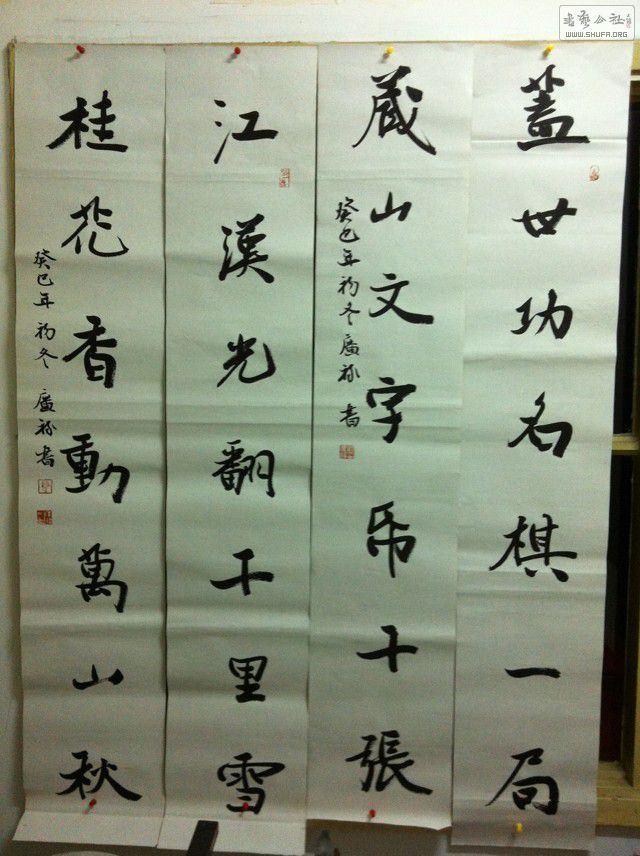 蓋世功名棋一局
藏山文字帋十張
癸巳年初冬廣書
江漢光翻千里雪
桂花香動萬山秋
癸巳年初冬廣書
書藝公社
WWW.SHUFA.ORG